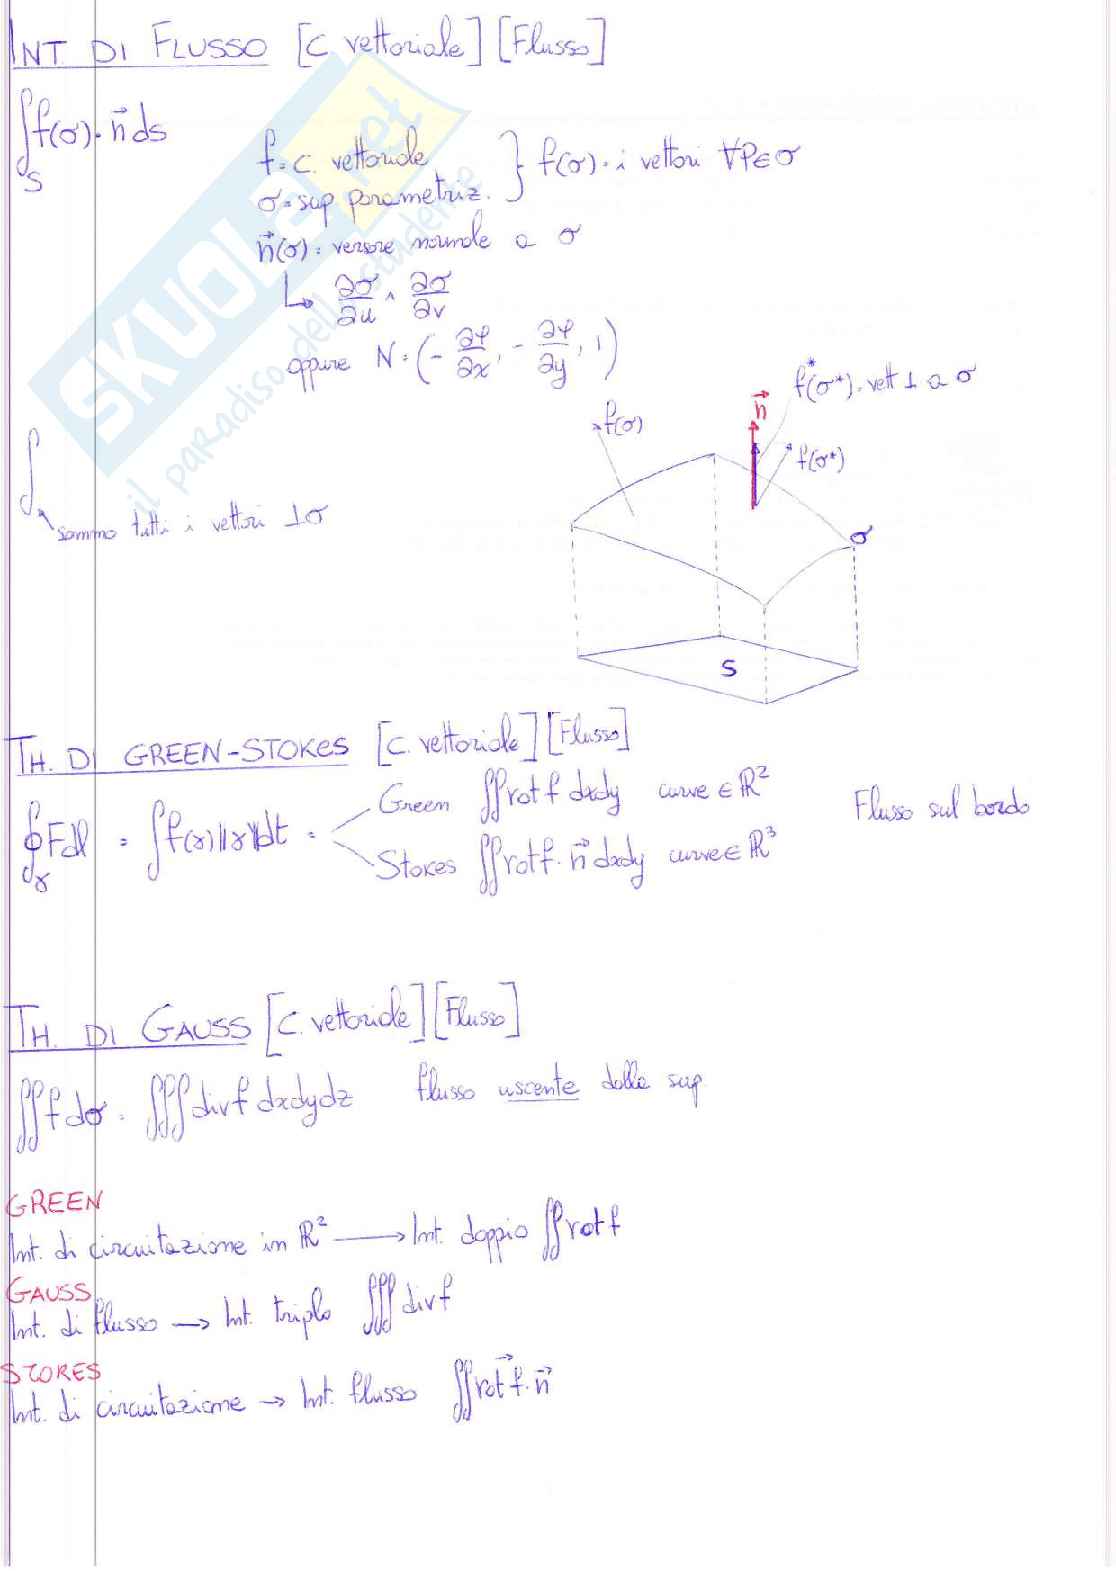 INT. DI FLUSSO [C. vettoriale] [Flusso]
∫f(σ)·n⃗ ds
S
f = c. vettoriale
σ = sup parametriz. } f(σ) = i vettori ∀P∈σ
n⃗(σ) = versore normale a σ
↳ ∂σ/∂u ∧ ∂σ/∂v
oppure N = (-∂φ/∂x, -∂φ/∂y, 1)
f(σ)
n⃗
f*(σ*) = vett ⊥ a σ
f(σ*)
σ
S
∫
sommo tutti i vettori ⊥σ
TH. DI GREEN-STOKES [C. vettoriale] [Flusso]
∮γ F dl = ∫f(γ)||γ'||dt =
Green ∬rot f dxdy curve ∈ ℝ²
Stokes ∬rot f · n⃗ dxdy curve ∈ ℝ³
Flusso sul bordo
TH. DI GAUSS [C. vettoriale] [Flusso]
∬f dσ = ∭div f dxdydz flusso uscente dalla sup
GREEN
Int. di circuitazione in ℝ² → Int. doppio ∬rot f
GAUSS
Int. di flusso → Int. triplo ∭div f
STOKES
Int. di circuitazione → Int. flusso ∬rot f⃗ · n⃗
SKUOLA.net
il paradiso dello studente